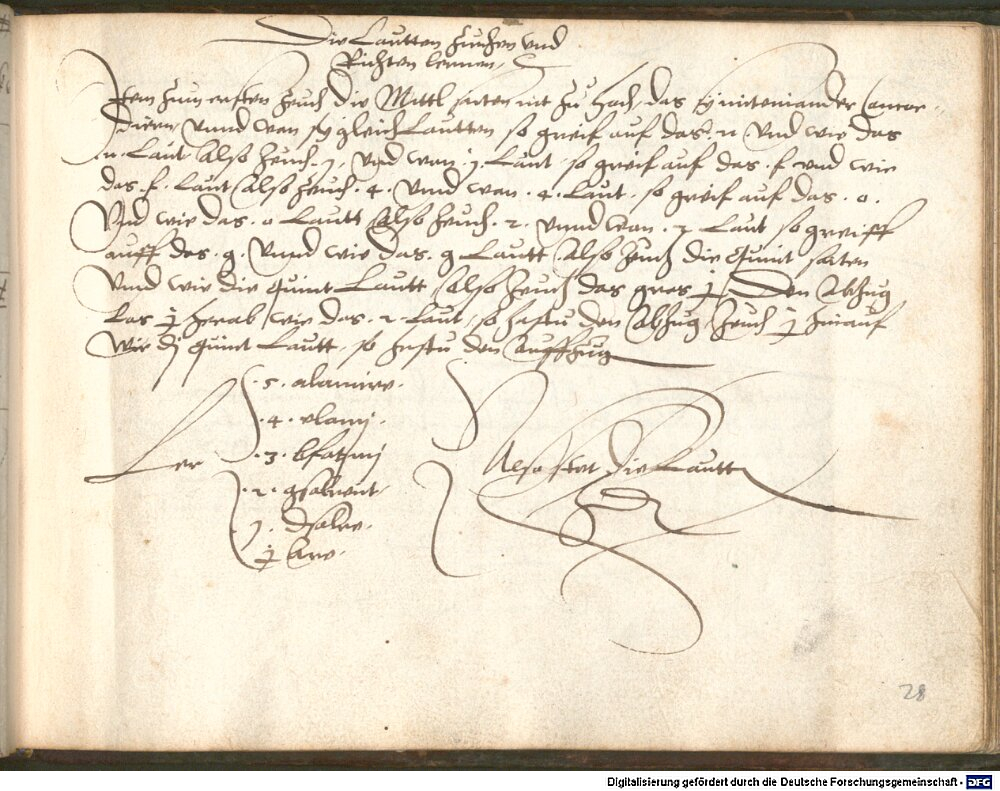 Die Lautten Zuichen vnd
Richten lernen
Item Zum ersten Zeuch die Mittl saiten nit Zu hoch, das sy miteinander Concor-
dieren, vnnd wan sy gleich Lautten so greif auf das n vnd wie das
n. Laut Also Zeuch. 1. vnd wan. 1. Laut. so greif auf das. f. vnd wie
das. f. Laut Also Zeuch. 4. vnnd wan. 4. Laut. so greif auf das. o.
Vnd wie das. o Lautt Also Zeuch. 2. vnnd wan. 2 Laut so greiff
auff das. g. vnnd wie das. g Lautt Also Zeuch die Quint saiten
Vnnd wie die Quint Lautt, Also Zeuch das gros j Den Abzug
Las j herab wie das. 2. Laut, so hastu den Abzug Zeuch j hinauf
Wie dj Quint Lautt. so hastu den Auffzug
Ler
. 5. alamire.
. 4. elami.
. 3. bfabmj
. 2. gsolreut
1. dsolre.
j Are.
Also stet die Lautt
28
Digitalisierung gefördert durch die Deutsche Forschungsgemeinschaft - DFG